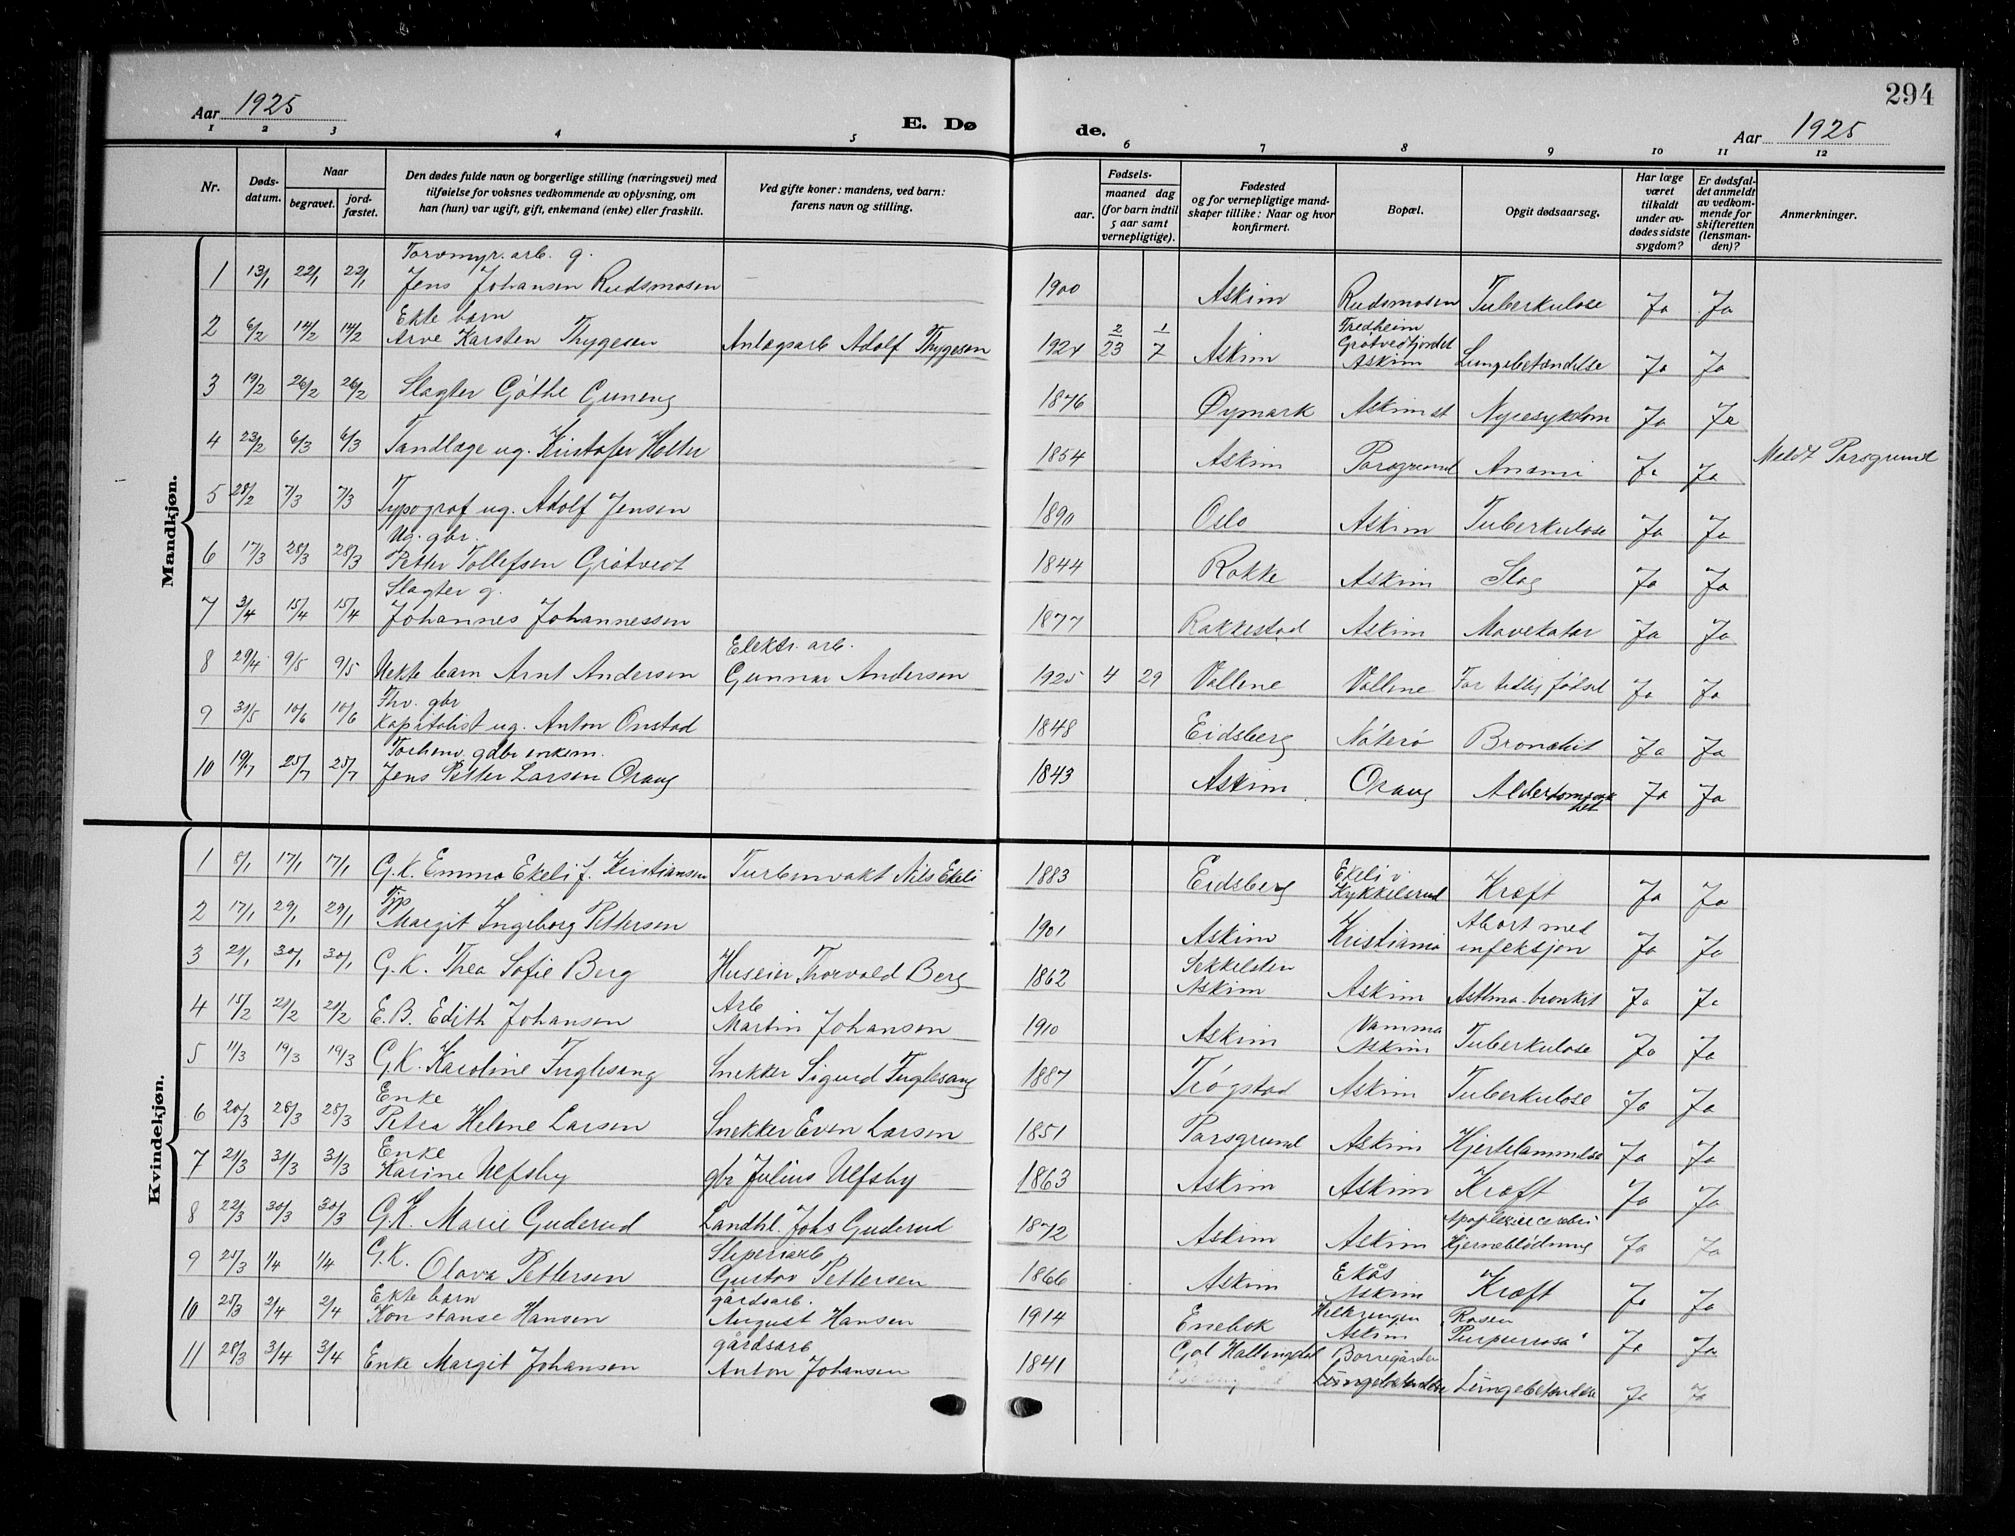 294
Aar 1925
E. Dø
de.
Aar 1925
1 2 3 4 5 6 7 8 9 10 11 12
Nr.
Døds-
datum.
Naar
begravet.
jord-
fæstet.
Den dødes fulde navn og borgerlige stilling (næringsvei) med
tilføielse for voksnes vedkommende av oplysning, om
han (hun) var ugift, gift, enkemand (enke) eller fraskilt.
Ved gifte koner: mandens, ved barn:
farens navn og stilling.
Fødsels-
aar.
maaned dag
(for barn indtil
5 aar samt
vernepligtige).
Fødested
og for vernepligtige mand-
skaper tillike: Naar og hvor
konfirmert.
Bopæl.
Opgit dødsaarsag.
Har læge
været
tilkaldt
under av-
dødes sidste
sygdom?
Er dødsfal-
det anmeldt
av vedkom-
mende for
skifteretten
(lensman-
den)?
Anmerkninger.
Mandkjøn.
Torvmyr. arb. g.
1 13/1 22/1 22/1 Jens Johansen Rudsmosen 1900 Askim Rudsmosen Tuberkulose Ja Ja
Ekte barn
Fredheim
Grøtvedfjordet
2 6/2 14/2 14/2 Arve Karsten Thygesen Anlægsarb Adolf Thygesen 1924 2/23 1/7 Askim Askim Lungebetændelse Ja Ja
3 19/2 26/2 26/2 Slagter Göthe Guneng 1876 Øymark Askim st Nyresykdom Ja Ja
4 23/2 6/3 6/3 Tandlæge ug. Kristofer Holter 1854 Askim Porsgrund Anæmi Ja Ja Meldt Porsgrund
5 28/2 7/3 7/3 Typograf ug. Adolf Jensen 1890 Oslo Askim Tuberkulose Ja Ja
Ug. gbr.
6 17/3 28/3 28/3 Petter Tollefsen Grøtvedt 1844 Rokke Askim Slag Ja Ja
Slagter g.
7 3/4 15/4 15/4 Johannes Johannessen 1877 Rakkestad Askim Mavekatar Ja Ja
Elektr. arb.
8 29/4 9/5 9/5 Uekte barn Arnt Andersen Gunnar Andersen 1925 4 29 Vollene Vollene For tidlig fødsel Ja Ja
Fhv. gbr
9 31/5 10/6 10/6 Kapitalist ug. Anton Onstad 1848 Eidsberg Nøterø Bronchit Ja Ja
gdbr enkem.
10 19/7 25/7 25/7 Jens Petter Larsen Oraug 1843 Askim Oraug Alderdomssvakhet Ja Ja
Kvindekjøn.
Ekeli v
1 8/1 17/1 17/1 G.K. Emma Ekeli f. Kristiansen Turbinvakt Nils Ekeli 1883 Eidsberg Kykkelsrud Kræft Ja Ja
Tjp
Abort med
2 17/1 29/1 29/1 Margit Ingeborg Pettersen 1901 Askim Kristiania infeksjon Ja Ja
Sekkelsten
3 21/1 30/1 30/1 G.K. Thea Sofie Berg Huseier Thorvald Berg 1862 Askim Askim Asthma-bronkit Ja Ja
Arb
Vamma
4 15/2 21/2 21/2 E.B. Edith Johansen Martin Johansen 1910 Askim Askim Tuberkulose Ja Ja
5 11/3 19/3 19/3 G.K. Karoline Fuglesang Snekker Sigurd Fuglesang 1887 Trøgstad Askim Tuberkulose Ja Ja
Enke
6 20/3 28/3 28/3 Petra Helene Larsen Snekker Even Larsen 1851 Porsgrund Askim Hjertelammelse Ja Ja
Enke
7 21/3 31/3 31/3 Karine Ulfsby gbr Julius Ulfsby 1863 Askim Askim Kræft Ja Ja
8 22/3 30/3 30/3 G.K. Marie Guderud Landhl. Johs Guderud 1872 Askim Askim Hjerneblødning Ja Ja
Sliperiarb
Ekås
9 25/3 1/4 1/4 G.K. Olava Pettersen Gustav Pettersen 1866 Askim Askim Kræft Ja Ja
Ekte barn
gårdsarb.
Rosen
10 25/3 2/4 2/4 Konstanse Hansen August Hansen 1914 Enebak Askim Purpurrosa Ja Ja
gårdsarb
Gol Hallingdal
Borregården
11 28/3 3/4 3/4 Enke Margit Johansen Anton Johansen 1841 Lungebetændelse Lungebetændelse Ja Ja